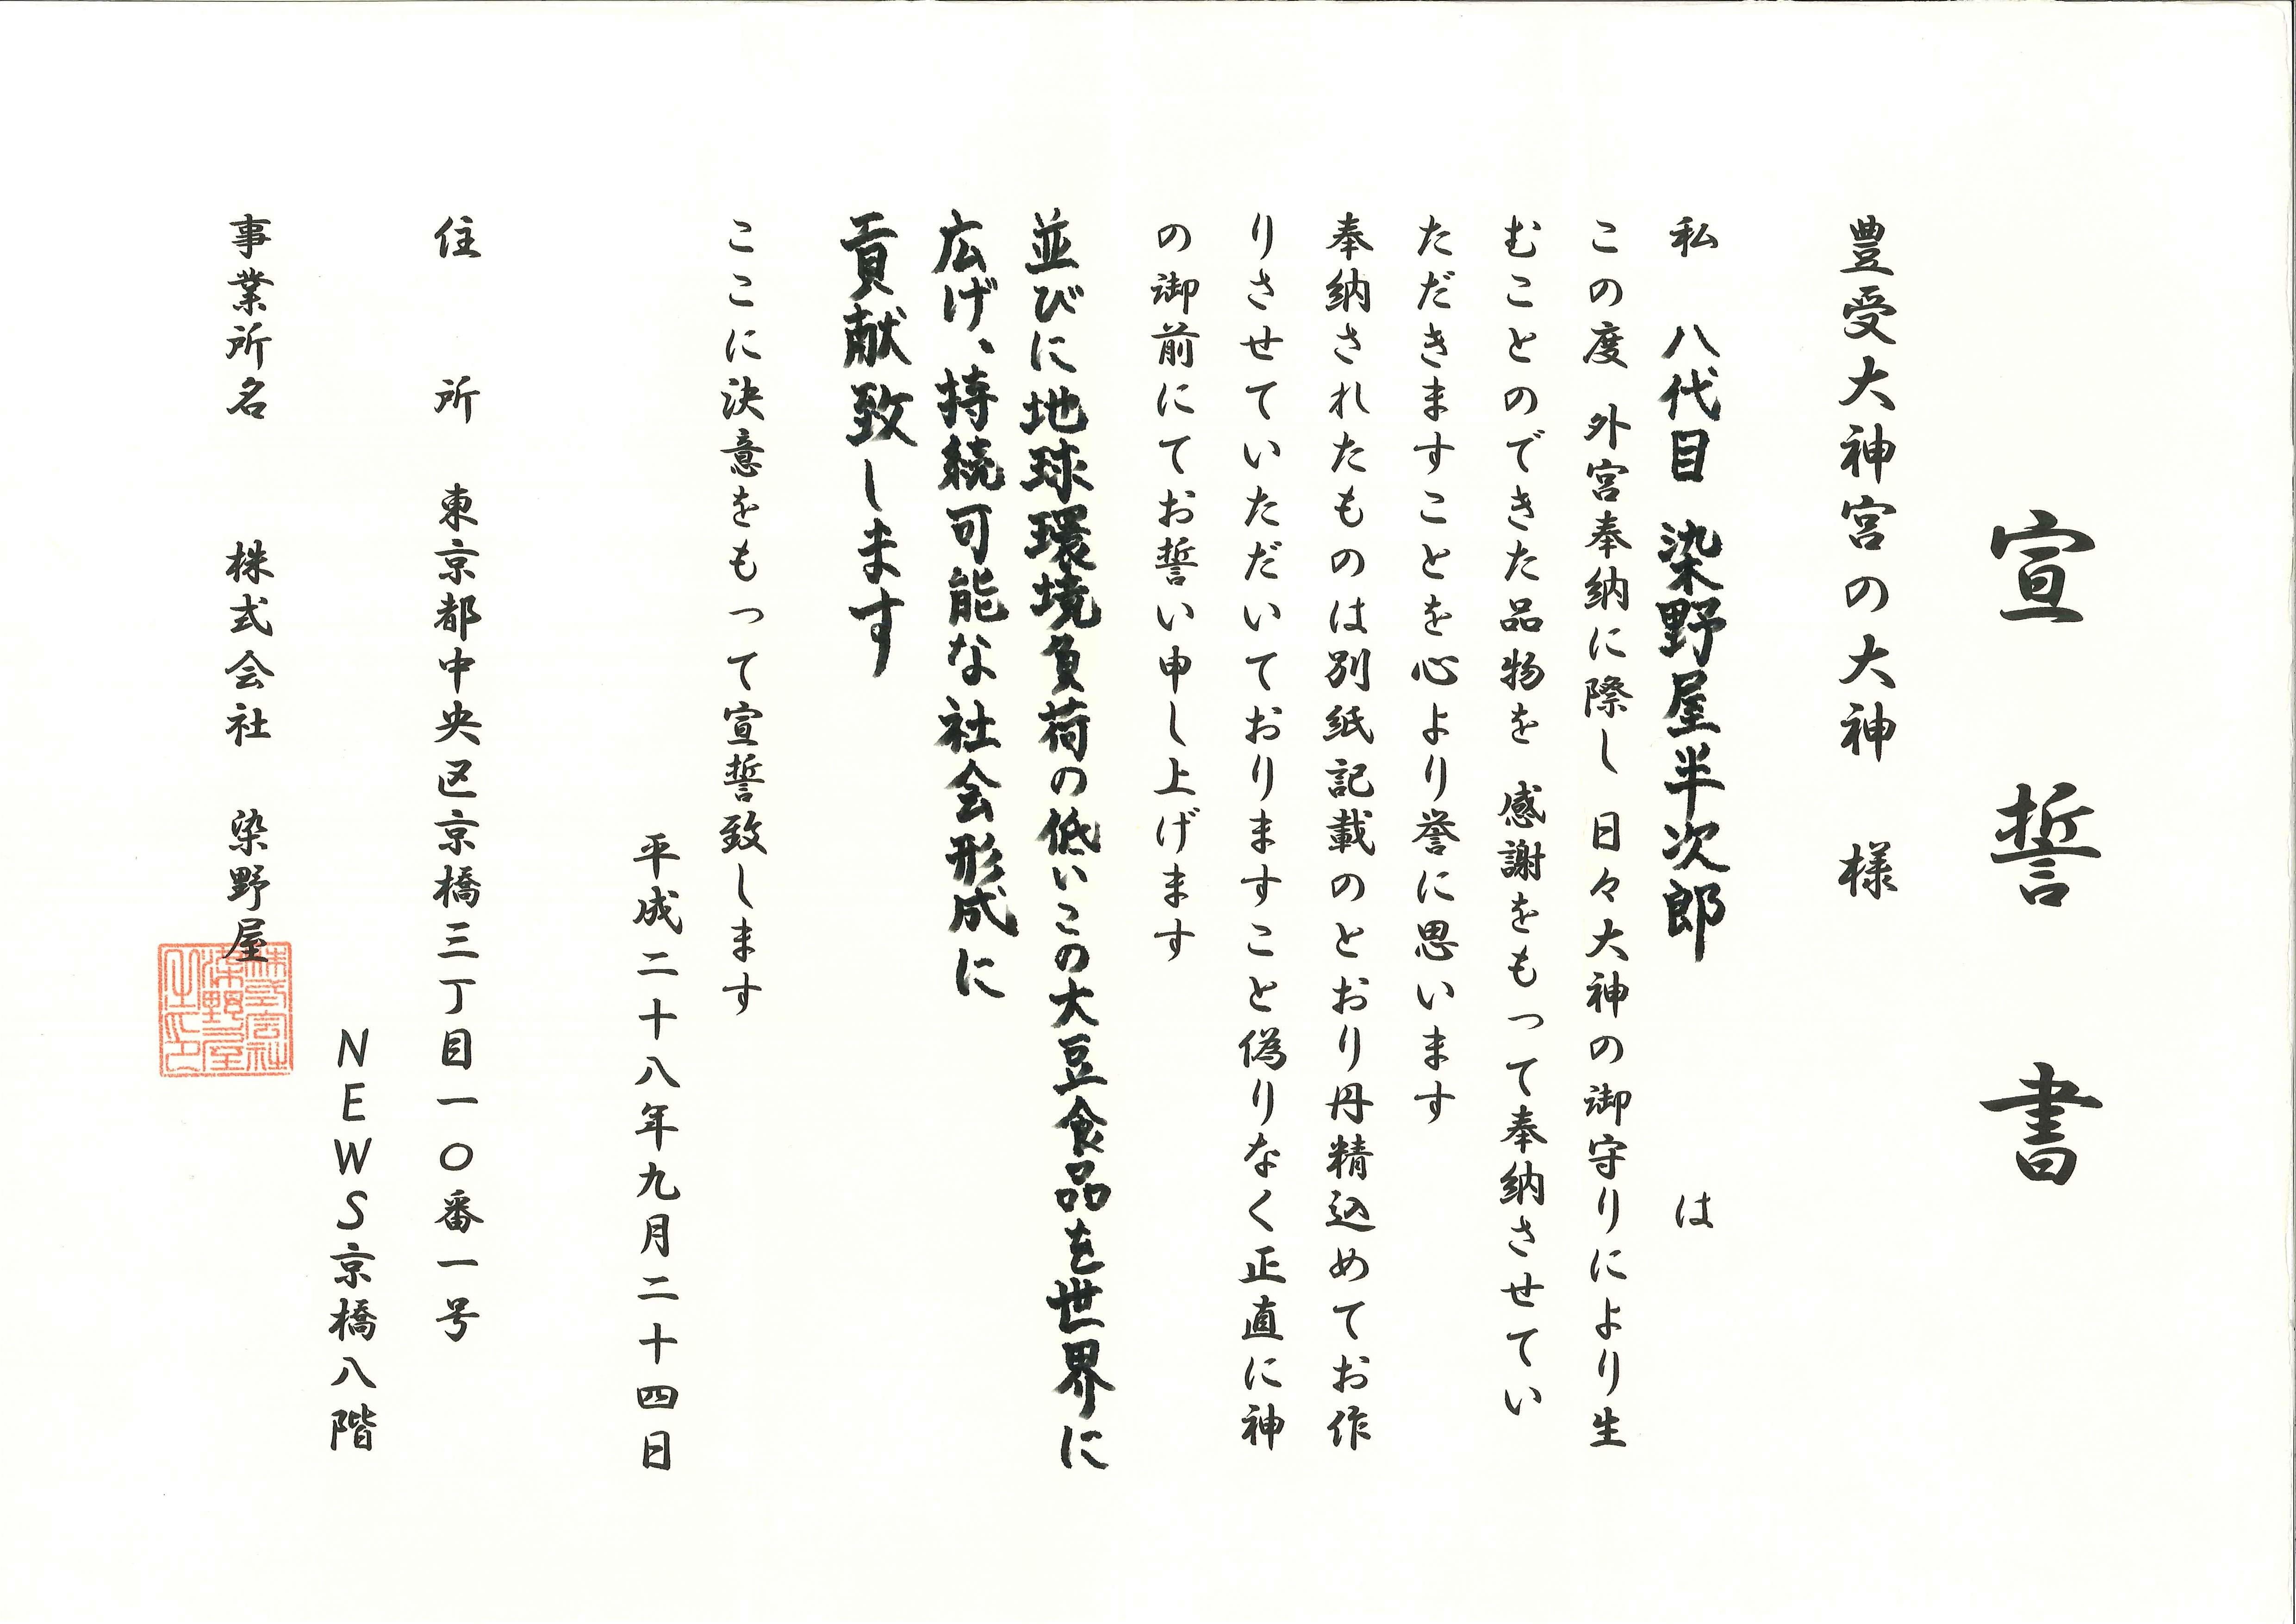 宣誓書
豊受大神宮の大神 様
私 八代目 染野屋半次郎 は
この度 外宮奉納に際し 日々大神の御守りにより生
むことのできた品物を 感謝をもって奉納させてい
ただきますことを心より誉に思います
奉納されたものは別紙記載のとおり丹精込めてお作
りさせていただいておりますこと偽りなく正直に神
の御前にてお誓い申し上げます
並びに地球環境負荷の低いこの大豆食品を世界に
広げ、持続可能な社会形成に
貢献致します
ここに決意をもって宣誓致します
平成二十八年九月二十四日
住 所 東京都中央区京橋三丁目一〇番一号
NEWS京橋八階
事業所名 株式会社 染野屋
株式会社
染野屋
之印